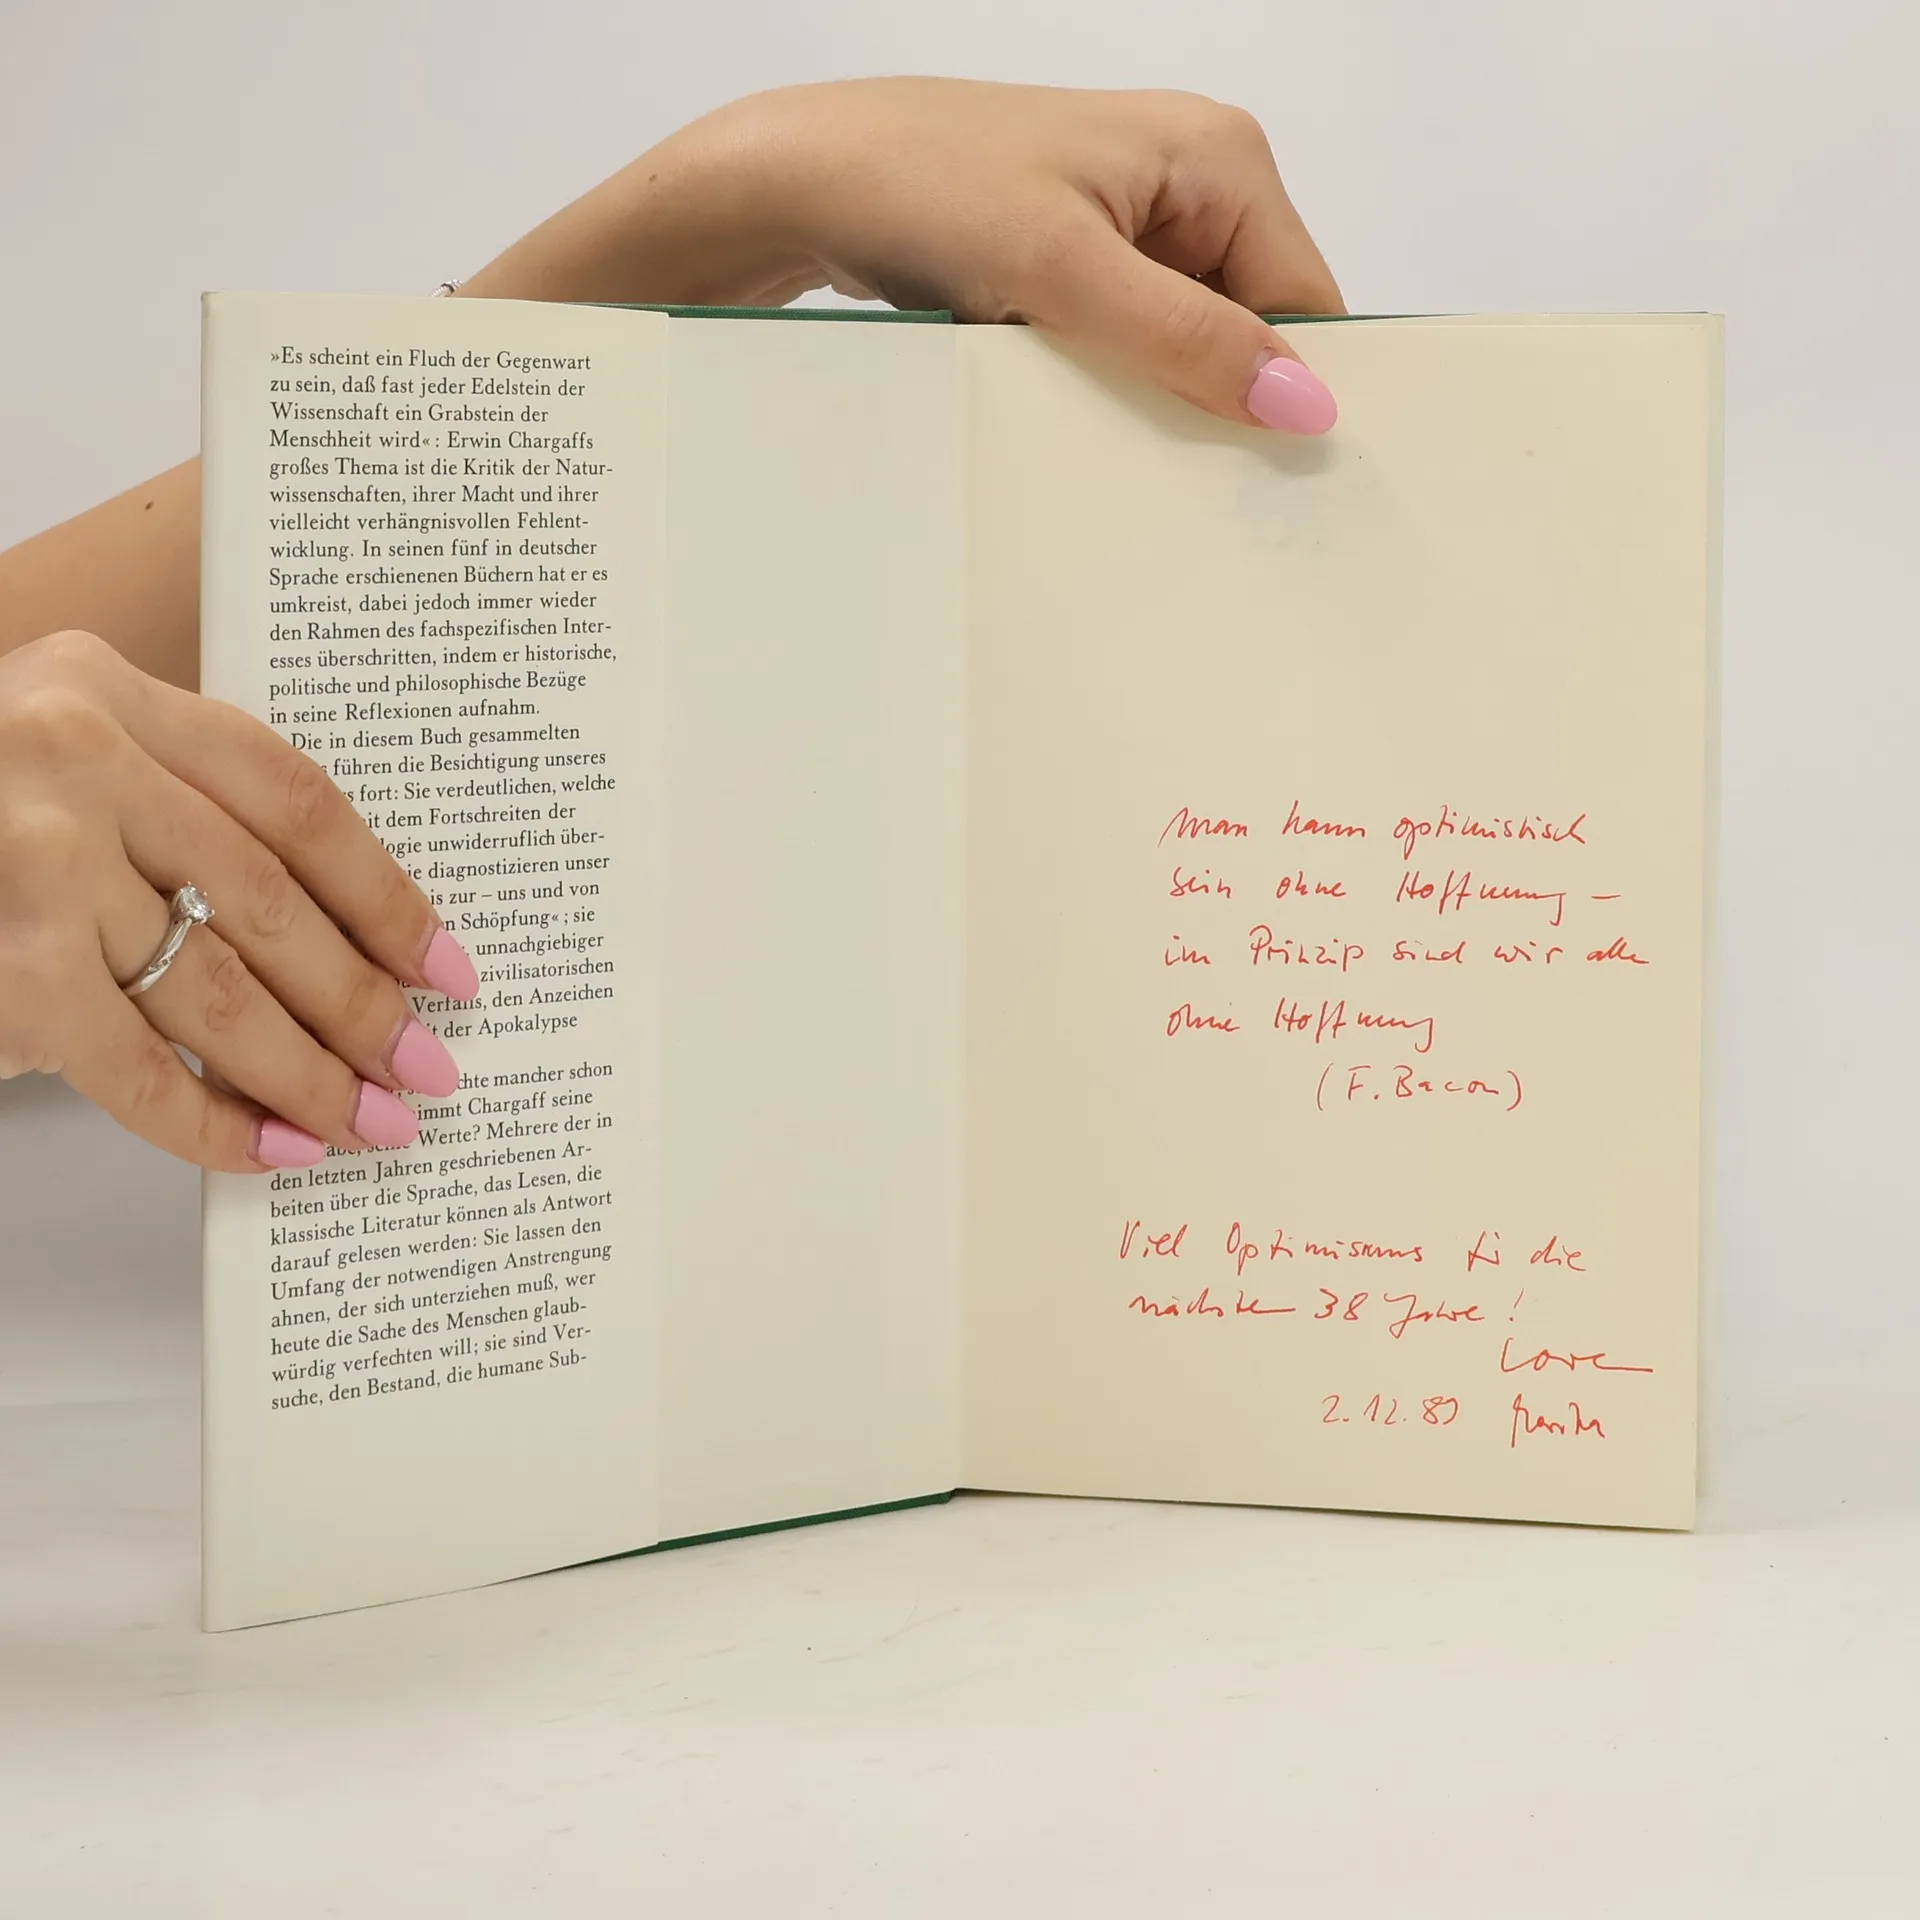 »Es scheint ein Fluch der Gegenwart
zu sein, daß fast jeder Edelstein der
Wissenschaft ein Grabstein der
Menschheit wird«: Erwin Chargaffs
großes Thema ist die Kritik der Natur-
wissenschaften, ihrer Macht und ihrer
vielleicht verhängnisvollen Fehlent-
wicklung. In seinen fünf in deutscher
Sprache erschienenen Büchern hat er es
umkreist, dabei jedoch immer wieder
den Rahmen des fachspezifischen Inter-
esses überschritten, indem er historische,
politische und philosophische Bezüge
in seine Reflexionen aufnahm.
Die in diesem Buch gesammelten
führen die Besichtigung unseres
fort: Sie verdeutlichen, welche
dem Fortschreiten der
unwiderruflich über-
diagnostizieren unser
zur – uns und von
Schöpfung«; sie
unnachgiebiger
zivilisatorischen
Verfalls, den Anzeichen
der Apokalypse
mancher schon
Chargaff seine
Werte? Mehrere der in
den letzten Jahren geschriebenen Ar-
beiten über die Sprache, das Lesen, die
klassische Literatur können als Antwort
darauf gelesen werden: Sie lassen den
Umfang der notwendigen Anstrengung
ahnen, der sich unterziehen muß, wer
heute die Sache des Menschen glaub-
würdig verfechten will; sie sind Ver-
suche, den Bestand, die humane Sub-
man kann optimistisch
sein ohne Hoffnung –
im Prinzip sind wir alle
ohne Hoffnung
(F. Bacon)
Viel Optimismus für die
nächsten 38 Jahre!
Love
2.12.89